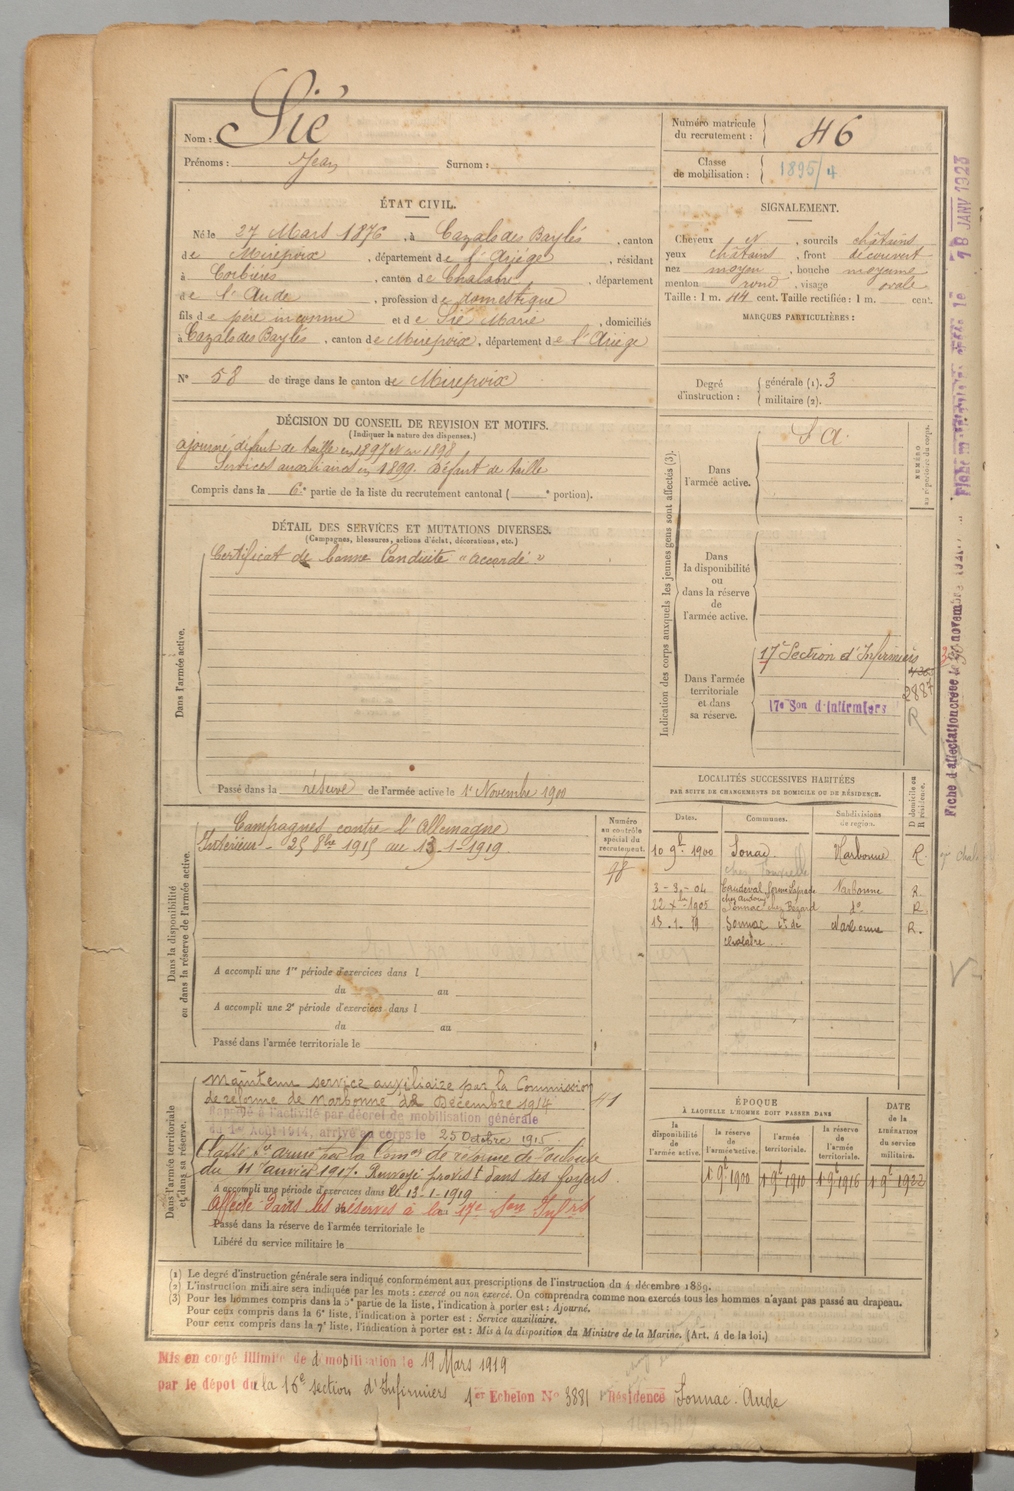 Nom : Sié
Prénoms : Jean Surnom :
Numéro matricule du recrutement : 46
Classe de mobilisation : 1895/4
ÉTAT CIVIL.
Né le 27 Mars 1876, à Cazals des Baylés, canton
de Mirepoix, département de l'Ariége, résidant
à Corbières, canton de Chalabre, département
de l'Aude, profession de domestique
fils de père inconnu et de Sié Marie, domiciliés
à Cazals des Baylés, canton de Mirepoix, département de l'Ariége
N° 58 de tirage dans le canton de Mirepoix
SIGNALEMENT.
Cheveux et, sourcils châtains
yeux châtains, front découvert
nez moyen, bouche moyenne
menton rond, visage ovale
Taille : 1 m. 44 cent. Taille rectifiée : 1 m. cent.
MARQUES PARTICULIÈRES :
Degré d'instruction : générale (1). 3
militaire (2).
DÉCISION DU CONSEIL DE REVISION ET MOTIFS.
(Indiquer la nature des dispenses.)
ajourné, défaut de taille en 1897 et en 1898
Services auxiliaires en 1899. Défaut de taille
Compris dans la 6.e partie de la liste du recrutement cantonal ( e portion).
DÉTAIL DES SERVICES ET MUTATIONS DIVERSES.
(Campagnes, blessures, actions d'éclat, décorations, etc.)
Dans l'armée active.
Certificat de bonne Conduite "accordé"
Passé dans la réserve de l'armée active le 1er Novembre 1900
Indication des corps auxquels les jeunes gens sont affectés (3).
NUMÉRO au répertoire du corps.
Dans l'armée active. S A.
Dans la disponibilité ou dans la réserve de l'armée active.
Dans l'armée territoriale et dans sa réserve.
17e Section d'Infirmiers
17e Son d'Infirmiers
2887
R
LOCALITÉS SUCCESSIVES HABITÉES
PAR SUITE DE CHANGEMENTS DE DOMICILE OU DE RÉSIDENCE.
Dates. Communes. Subdivisions de région. D domicile ou R résidence.
10 9bre 1900 Sonnac Narbonne R.
3-3-04 Narbonne R.
22 Xbre 1905 Sonnac chez do R
13.1.19 Sonnac ct de Chalabre Narbonne R.
Dans la disponibilité ou dans la réserve de l'armée active.
Numéro au contrôle spécial du recrutement.
98
Campagnes contre l'Allemagne
Intérieur - 25 8bre 1915 au 13-1-1919
A accompli une 1re période d'exercices dans l
du au
A accompli une 2e période d'exercices dans l
du au
Passé dans l'armée territoriale le
Dans l'armée territoriale et dans sa réserve.
Maintenu service auxiliaire par la Commission
de réforme de Narbonne du Décembre 1914
41
Rappelé à l'activité par décret de mobilisation générale
du 1er Août 1914, arrivé au corps le 25 Octobre 1915
Classé Sce armé par la Comon de réforme de Toulouse
du 11 Janvier 1917. Renvoyé provist dans ses foyers
A accompli une période d'exercices dans l le 13-1-1919
Affecté dans les réserves à la 17e Son Infrs
Passé dans la réserve de l'armée territoriale le
Libéré du service militaire le
ÉPOQUE
À LAQUELLE L'HOMME DOIT PASSER DANS
la disponibilité de l'armée active. la réserve de l'armée active. l'armée territoriale. la réserve de l'armée territoriale.
DATE de la LIBÉRATION du service militaire.
1 9bre 1900 1 9bre 1910 1 9bre 1916 1 9bre 1922
(1) Le degré d'instruction générale sera indiqué conformément aux prescriptions de l'instruction du 4 décembre 1889.
(2) L'instruction militaire sera indiquée par les mots : exercé ou non exercé. On comprendra comme non exercés tous les hommes n'ayant pas passé au drapeau.
(3) Pour les hommes compris dans la 5e partie de la liste, l'indication à porter est : Ajourné.
Pour ceux compris dans la 6e liste, l'indication à porter est : Service auxiliaire.
Pour ceux compris dans la 7e liste, l'indication à porter est : Mis à la disposition du Ministre de la Marine. (Art. 4 de la loi.)
Mis en congé illimité de démobilisation le 19 Mars 1919
par le dépot de la 16e section d'Infirmiers 1er Echelon No 3881 Résidence Sonnac. Aude
Fiche d'affectation créée le 30 novembre
18 JANV 1923